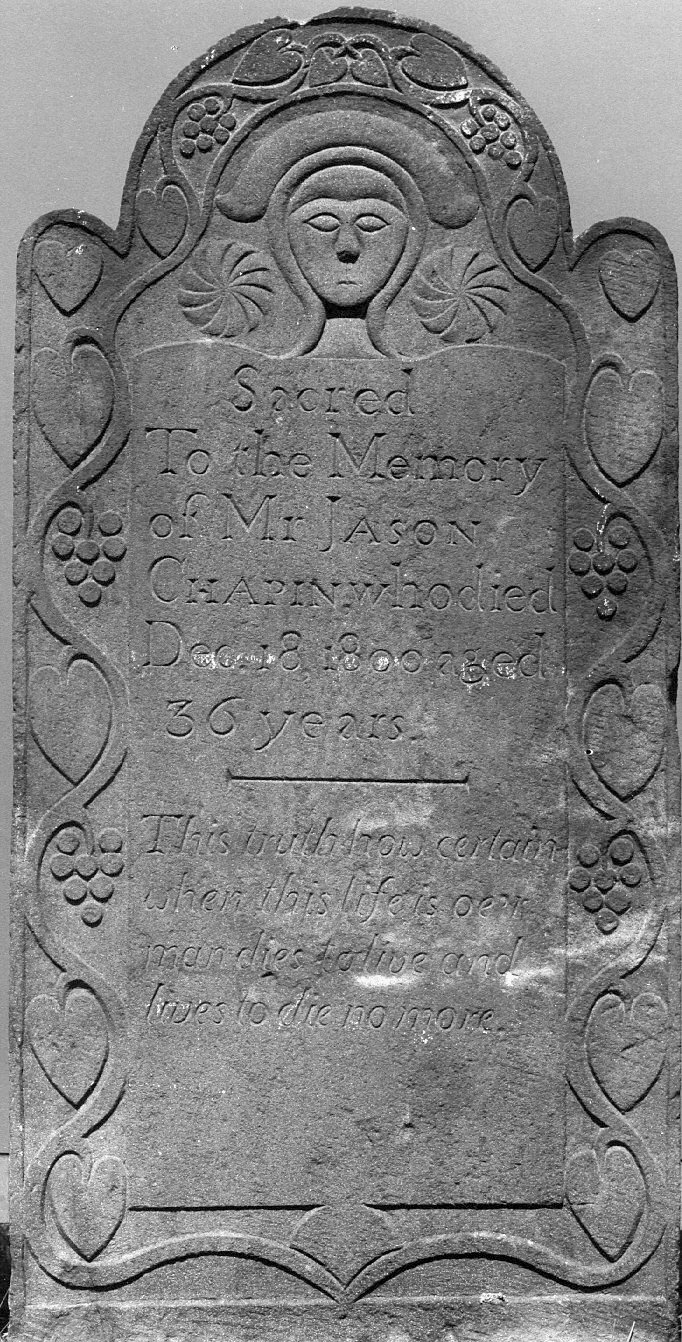 Sacred
To the Memory
of Mr JASON
CHAPIN who died
Dec 18 1800 aged
36 years.
This truth how certain
when this life is oe'r
man dies to live and
lives to die no more.